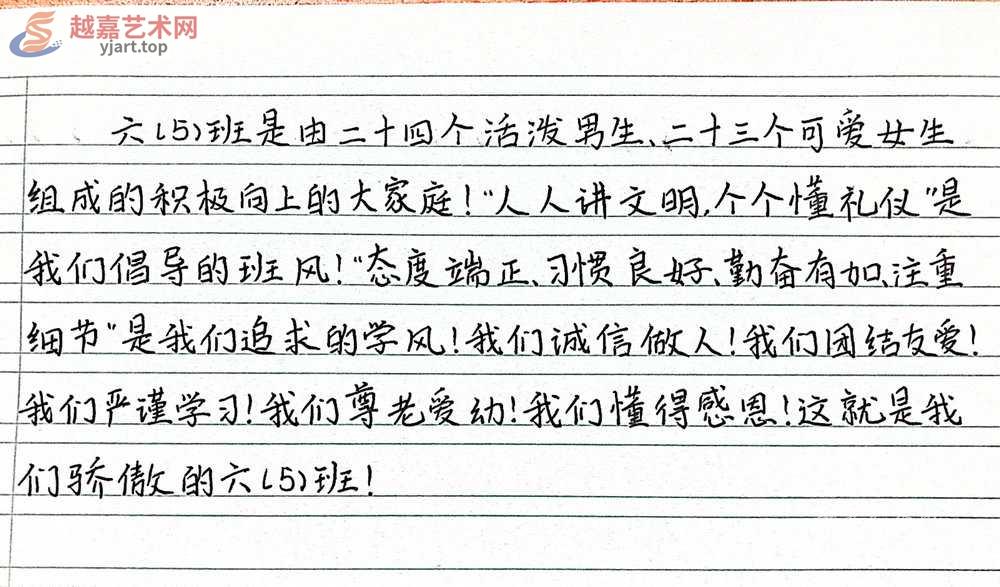 越嘉艺术网
yjart.top
六(5)班是由二十四个活泼男生、二十三个可爱女生
组成的积极向上的大家庭!“人人讲文明,个个懂礼仪”是
我们倡导的班风!“态度端正、习惯良好、勤奋有加、注重
细节”是我们追求的学风!我们诚信做人!我们团结友爱!
我们严谨学习!我们尊老爱幼!我们懂得感恩!这就是我
们骄傲的六(5)班!